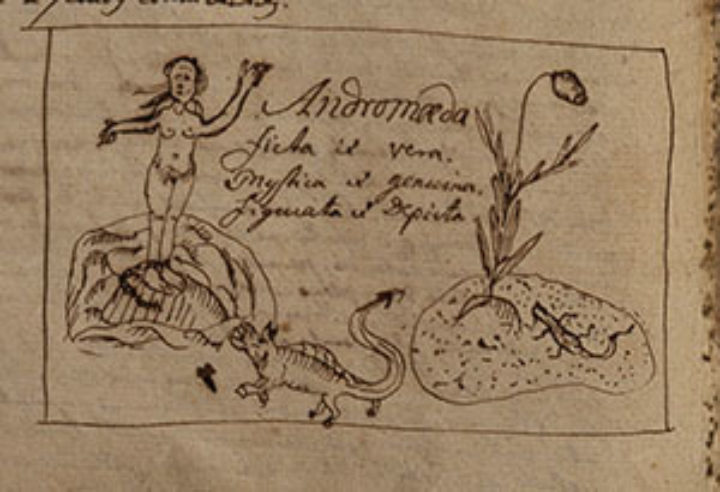 Andromæda
ficta et vera.
mystica et genuina.
figurata et depicta